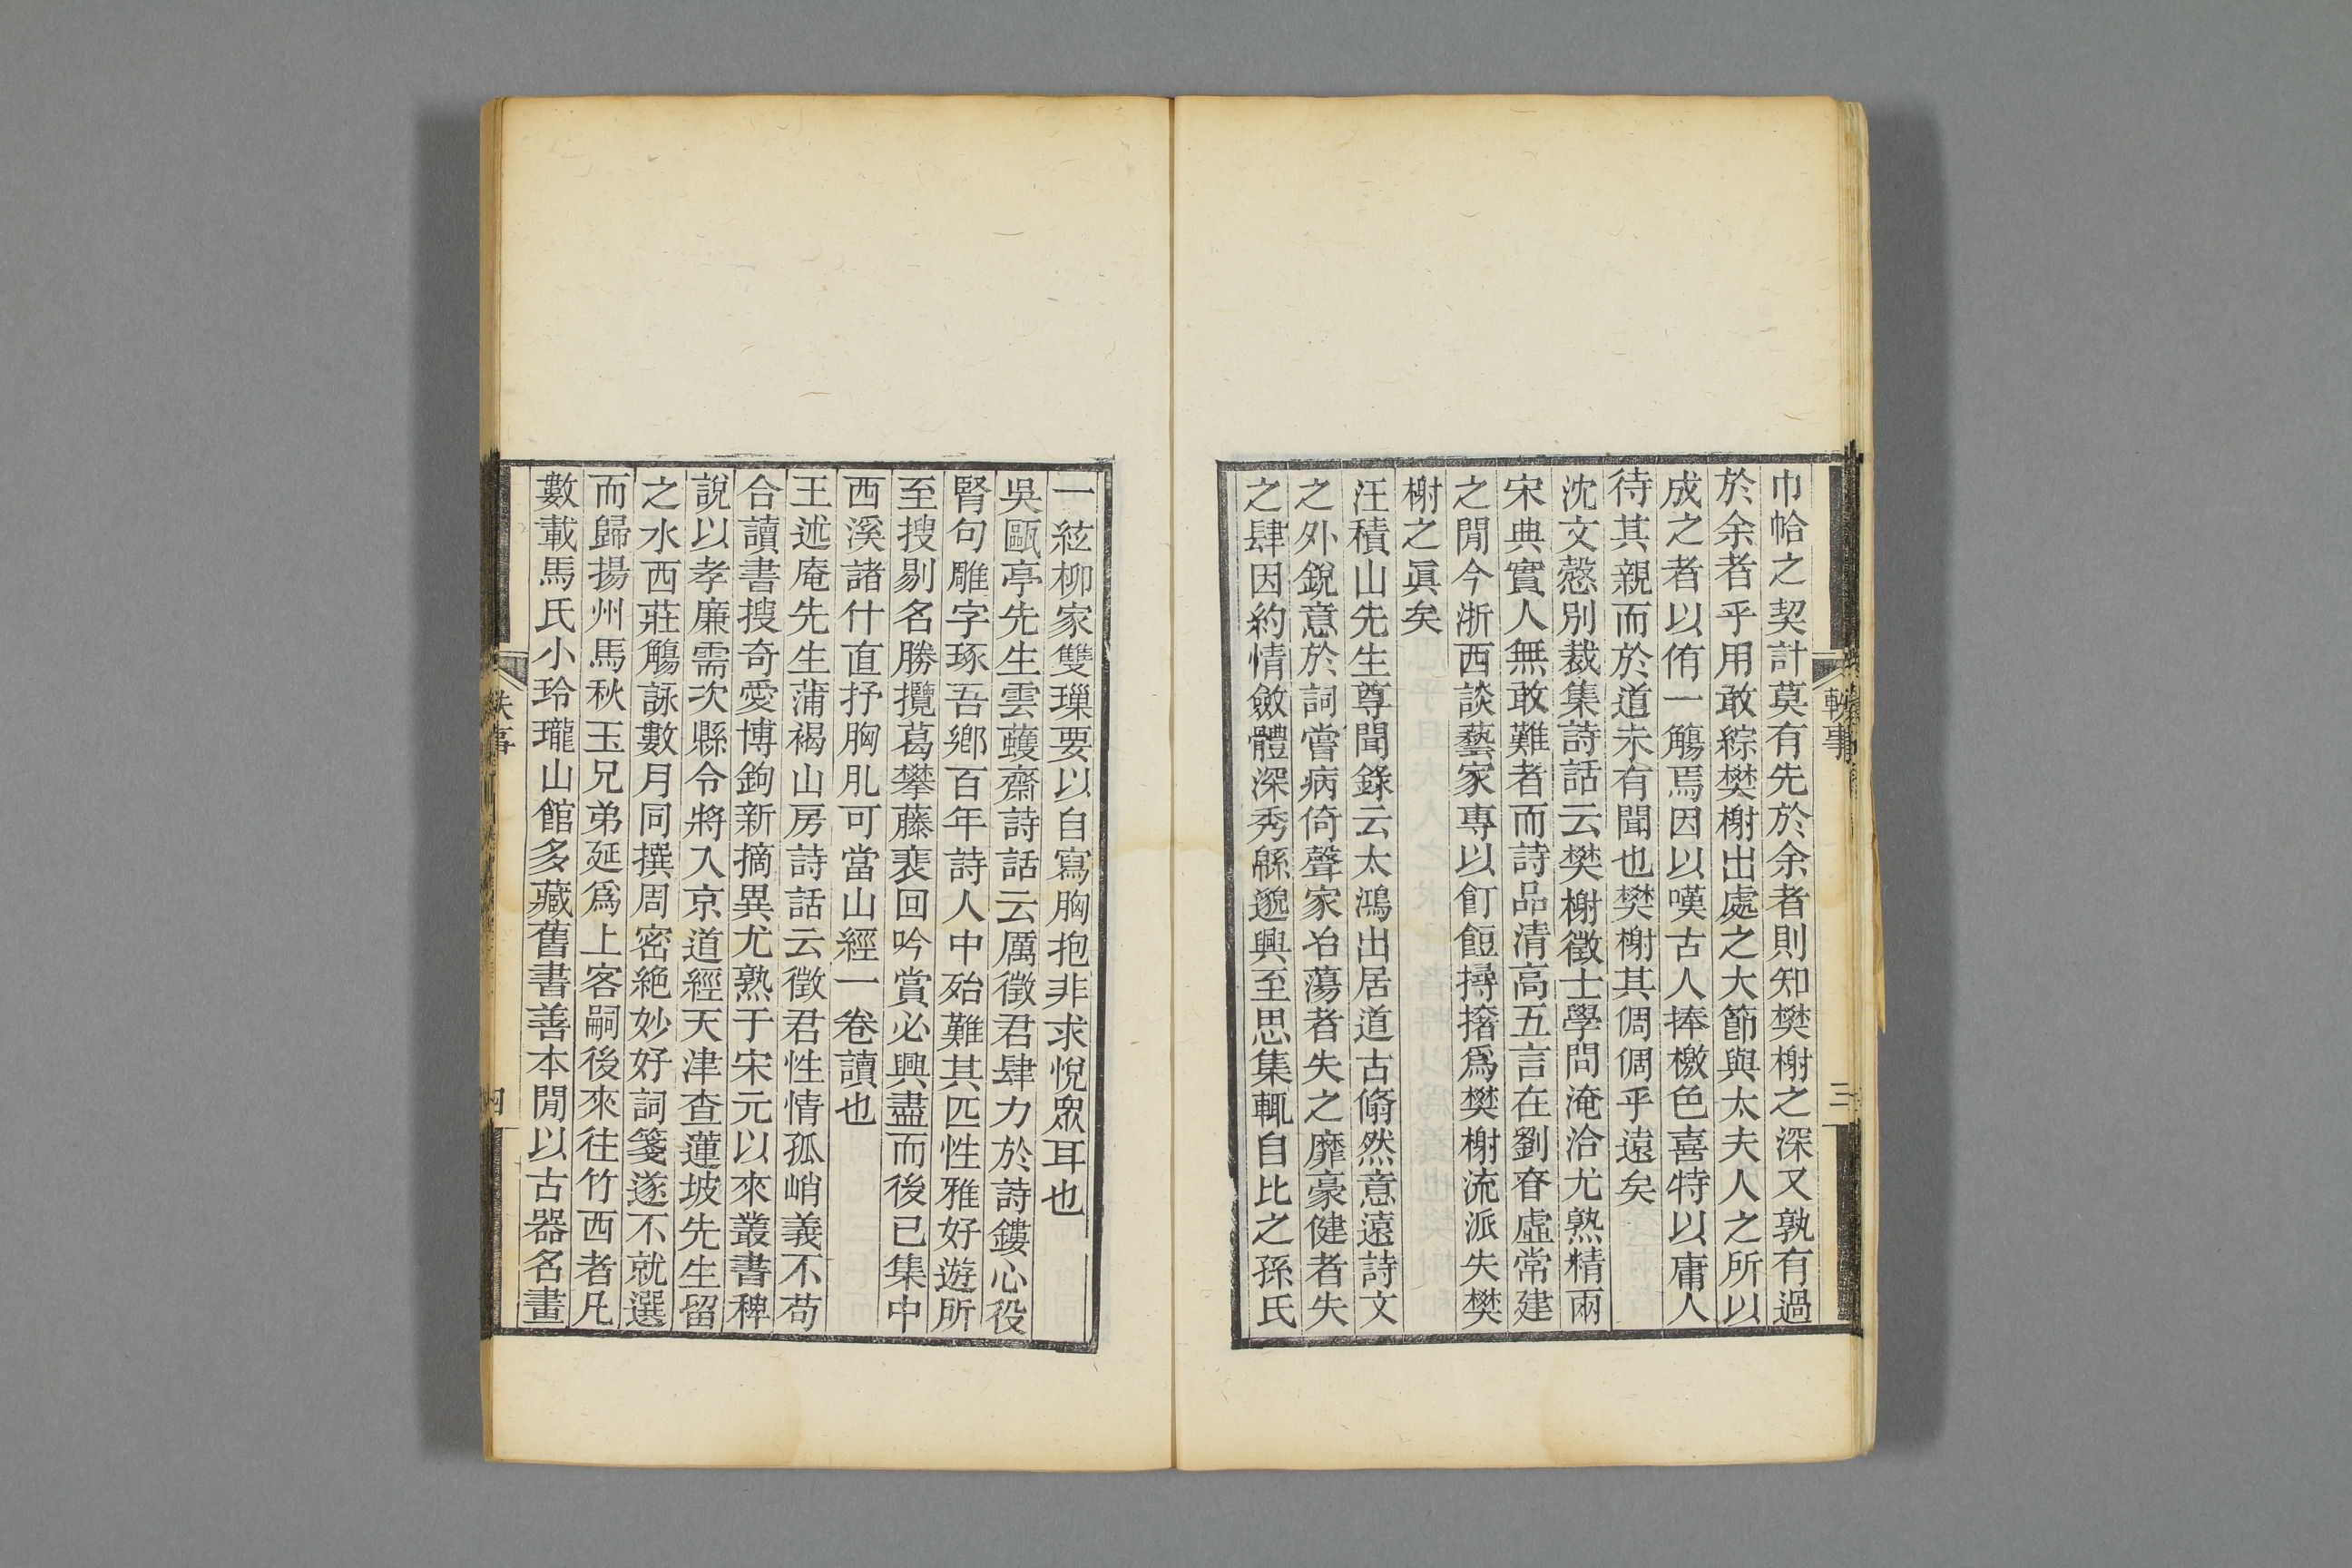 巾帢之契計莫有先於余者則知樊榭之深又孰有過
於余者乎用敢綜樊榭出處之大節與太夫人之所以
成之者以侑一觴焉因以嘆古人捧檄色喜特以庸人
待其親而於道未有聞也樊榭其倜倜乎遠矣
沈文慤別裁集詩話云樊榭徵士學問淹洽尤熟精兩
宋典實人無敢難者而詩品清高五言在劉昚虛常建
之閒今浙西談藝家專以飣餖撏撦爲樊榭流派失樊
榭之眞矣
汪積山先生尊聞錄云太鴻出居道古翛然意遠詩文
之外銳意於詞嘗病倚聲家冶蕩者失之靡豪健者失
之肆因約情斂體深秀緜邈興至思集輒自比之孫氏
軼事
三
一絃柳家雙璅要以自寫胸抱非求悅眾耳也
吳甌亭先生雲蠖齋詩話云厲徵君肆力於詩鏤心役
腎句雕字琢吾鄉百年詩人中殆難其匹性雅好遊所
至搜剔名勝攬葛攀藤裵回吟賞必興盡而後已集中
西溪諸什直抒胸肊可當山經一卷讀也
王述庵先生蒲褐山房詩話云徵君性情孤峭義不苟
合讀書搜奇愛博鉤新摘異尤熟于宋元以來叢書稗
說以孝廉需次縣令將入京道經天津查蓮坡先生留
之水西莊觴詠數月同撰周密絶妙好詞箋遂不就選
而歸揚州馬秋玉兄弟延爲上客嗣後來往竹西者凡
數載馬氏小玲瓏山館多藏舊書善本閒以古器名畫
軼事
四